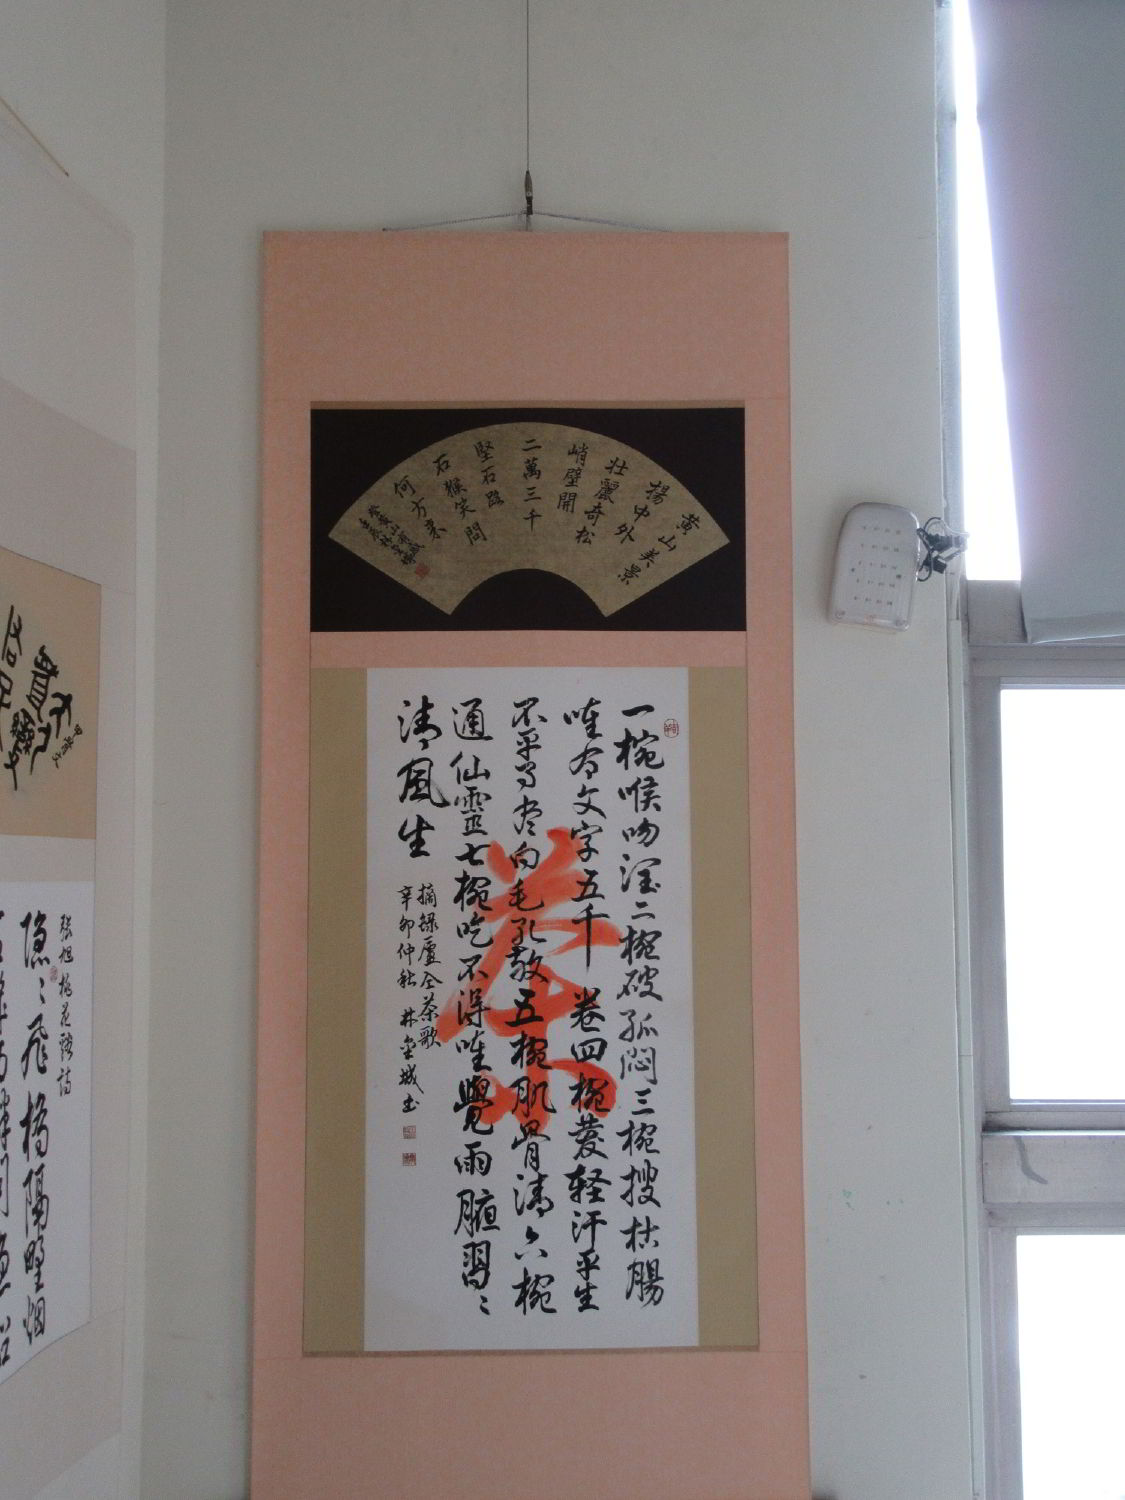 黃山美景
揚中外
壯麗奇松
峭壁開
二萬三千
堅石路
石猴笑問
何方來
一椀喉吻潤二椀破孤悶三椀搜枯腸
唯有文字五千卷四椀發轻汗平生
不平事尽向毛孔散五椀肌骨清六椀
通仙靈七椀吃不得唯覺兩腋習〻
清風生
摘録盧仝茶歌
辛卯仲秋 林金城书
茶
張旭桃花谿詩
隱〻飛橋隔野烟